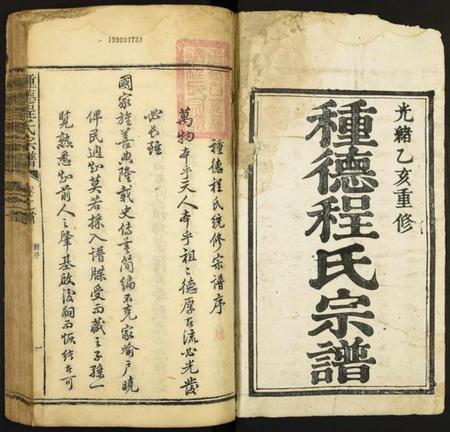 光緒乙亥重修
種德程氏宗譜
159003733
種德程氏統修宗譜序
萬物本乎天人本乎祖祖德厚者流必光齒
必長經
國家旌善典隆載史傳垂簡編不克家喻戶曉
俾民週知莫若採入譜牒受而藏之子孫一
覽熟悉知前人之肇基啟後嗣而恢緒者可
種德程氏宗譜
新序
一